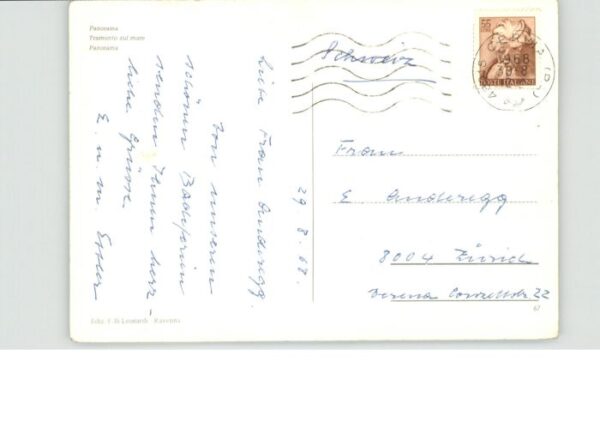 Panorama
Tramonto sul mare
Panorama
Liebe Frau Anderegg.
Von unseren
schönen Badeferien
senden Ihnen herz-
liche Grüsse.
E. u. M.
29. 8. 68.
Schweiz
55
POSTE ITALIANE
1968
Frau
E. Anderegg
8004 Zürich
Verena Conzettstr. 22
Ravenna
67